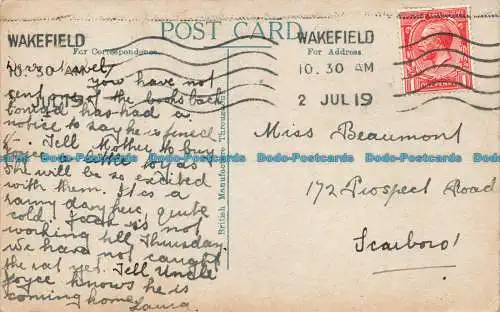 POST CARD
WAKEFIELD
10.30 AM
2 JUL 19
WAKEFIELD
10.30 AM
2 JUL 19
For Correspondence
For Address
British Manufacture Throughout
you have not
sent one of the books back
has had a
notice to say he is fined
Tell Mother to buy
Joyce a little toy as
She will be so excited
with them. It is a
rainy day here, quite
cold. Jack is not
working till Thursday.
We have not caught
the rat yet. Tell Uncle
Joyce knows he is
coming home.
Laura
Miss Beaumont
172 Prospect Road
Scarboro'
Dodo-Postcards Dodo-Postcards Dodo-Postcards Dodo-Postcards